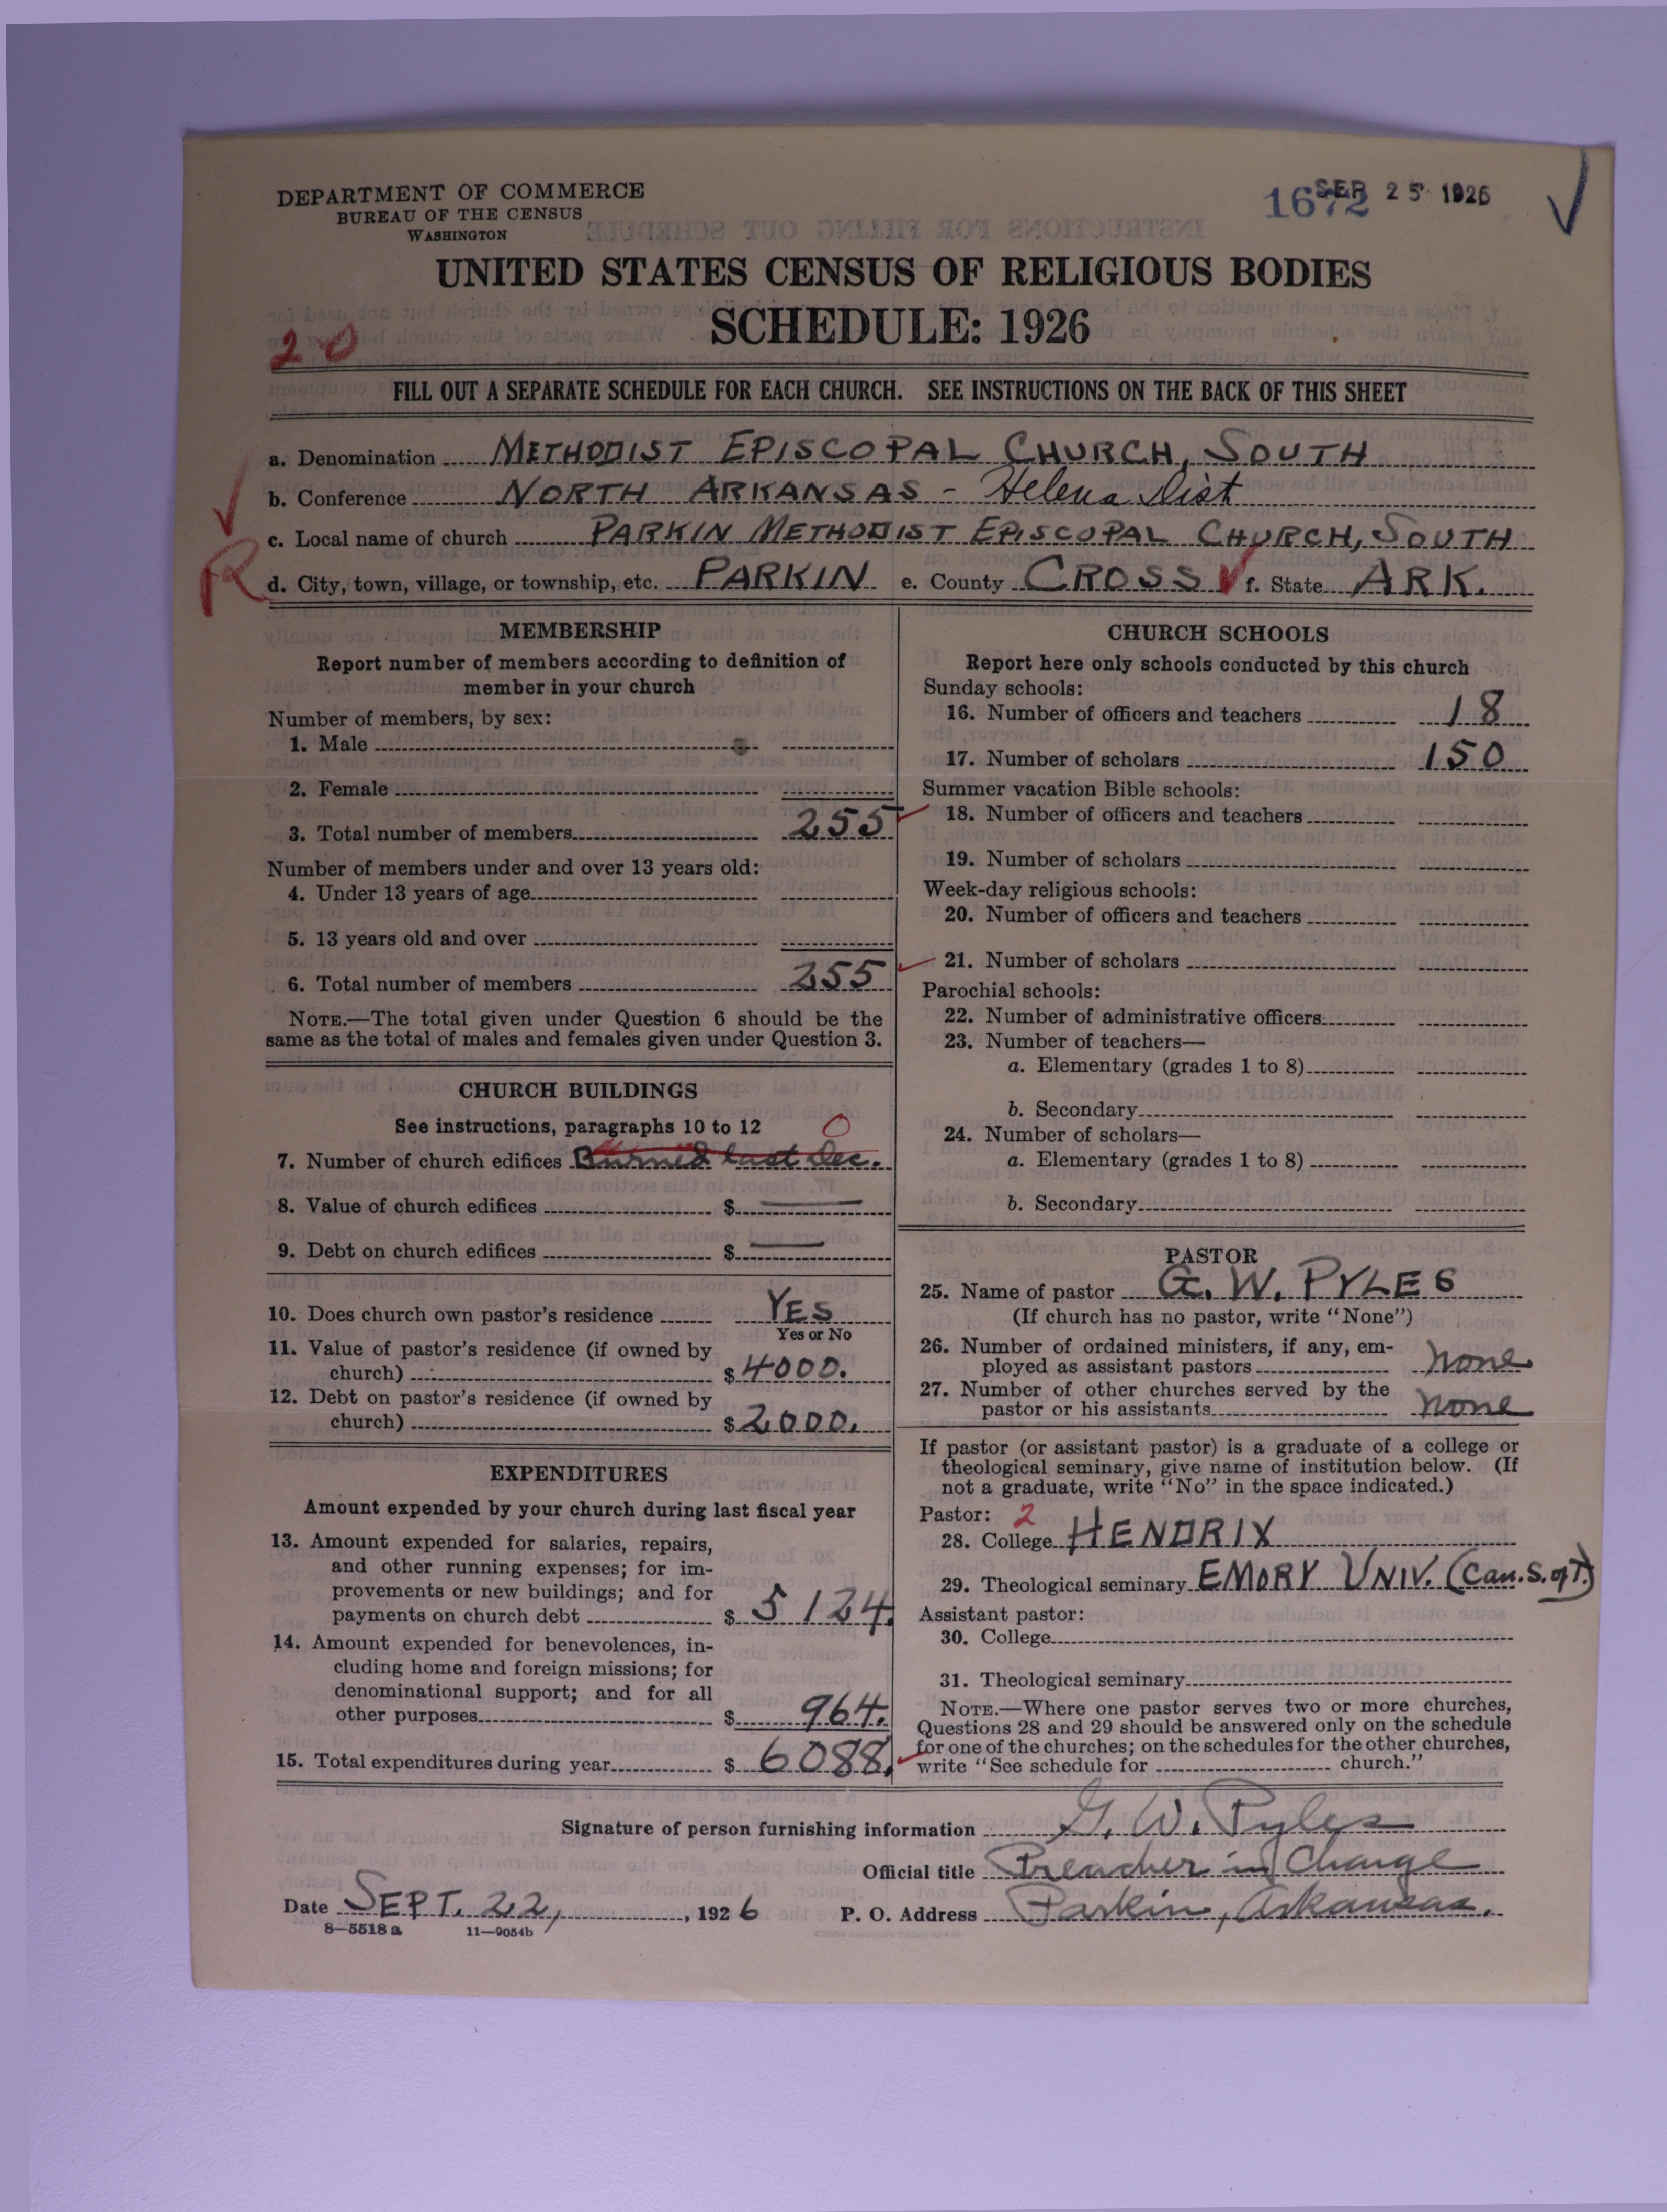 DEPARTMENT OF COMMERCE
BUREAU OF THE CENSUS
WASHINGTON
1672 SEP 25 1926
UNITED STATES CENSUS OF RELIGIOUS BODIES
SCHEDULE: 1926
20
FILL OUT A SEPARATE SCHEDULE FOR EACH CHURCH. SEE INSTRUCTIONS ON THE BACK OF THIS SHEET
a. Denomination METHODIST EPISCOPAL CHURCH, SOUTH
b. Conference NORTH ARKANSAS - Helena Dist
c. Local name of church PARKIN METHODIST EPISCOPAL CHURCH, SOUTH
R
d. City, town, village, or township, etc. PARKIN e. County CROSS f. State ARK.
MEMBERSHIP
Report number of members according to definition of
member in your church
Number of members, by sex:
1. Male
2. Female
3. Total number of members 255
Number of members under and over 13 years old:
4. Under 13 years of age
5. 13 years old and over
6. Total number of members 255
NOTE.—The total given under Question 6 should be the
same as the total of males and females given under Question 3.
CHURCH BUILDINGS
See instructions, paragraphs 10 to 12 0
7. Number of church edifices Burned last Dec.
8. Value of church edifices $ —
9. Debt on church edifices $ —
10. Does church own pastor's residence YES
Yes or No
11. Value of pastor's residence (if owned by
church) $4000.
12. Debt on pastor's residence (if owned by
church) $2000.
EXPENDITURES
Amount expended by your church during last fiscal year
13. Amount expended for salaries, repairs,
and other running expenses; for im-
provements or new buildings; and for
payments on church debt $ 5124.
14. Amount expended for benevolences, in-
cluding home and foreign missions; for
denominational support; and for all
other purposes $ 964.
15. Total expenditures during year $ 6088.
CHURCH SCHOOLS
Report here only schools conducted by this church
Sunday schools:
16. Number of officers and teachers 18
17. Number of scholars 150
Summer vacation Bible schools:
18. Number of officers and teachers
19. Number of scholars
Week-day religious schools:
20. Number of officers and teachers
21. Number of scholars
Parochial schools:
22. Number of administrative officers
23. Number of teachers—
a. Elementary (grades 1 to 8)
b. Secondary
24. Number of scholars—
a. Elementary (grades 1 to 8)
b. Secondary
PASTOR
25. Name of pastor G. W. PYLES
(If church has no pastor, write "None")
26. Number of ordained ministers, if any, em-
ployed as assistant pastors none
27. Number of other churches served by the
pastor or his assistants none
If pastor (or assistant pastor) is a graduate of a college or
theological seminary, give name of institution below. (If
not a graduate, write "No" in the space indicated.)
Pastor: 2
28. College HENDRIX
29. Theological seminary EMORY UNIV. (Can. S. of T.)
Assistant pastor:
30. College
31. Theological seminary
NOTE.—Where one pastor serves two or more churches,
Questions 28 and 29 should be answered only on the schedule
for one of the churches; on the schedules for the other churches,
write "See schedule for church."
Signature of person furnishing information G. W. Pyles
Official title Preacher in Charge
Date SEPT. 22, 1926 P. O. Address Parkin, Arkansas.
8—5518 a 11—9054b